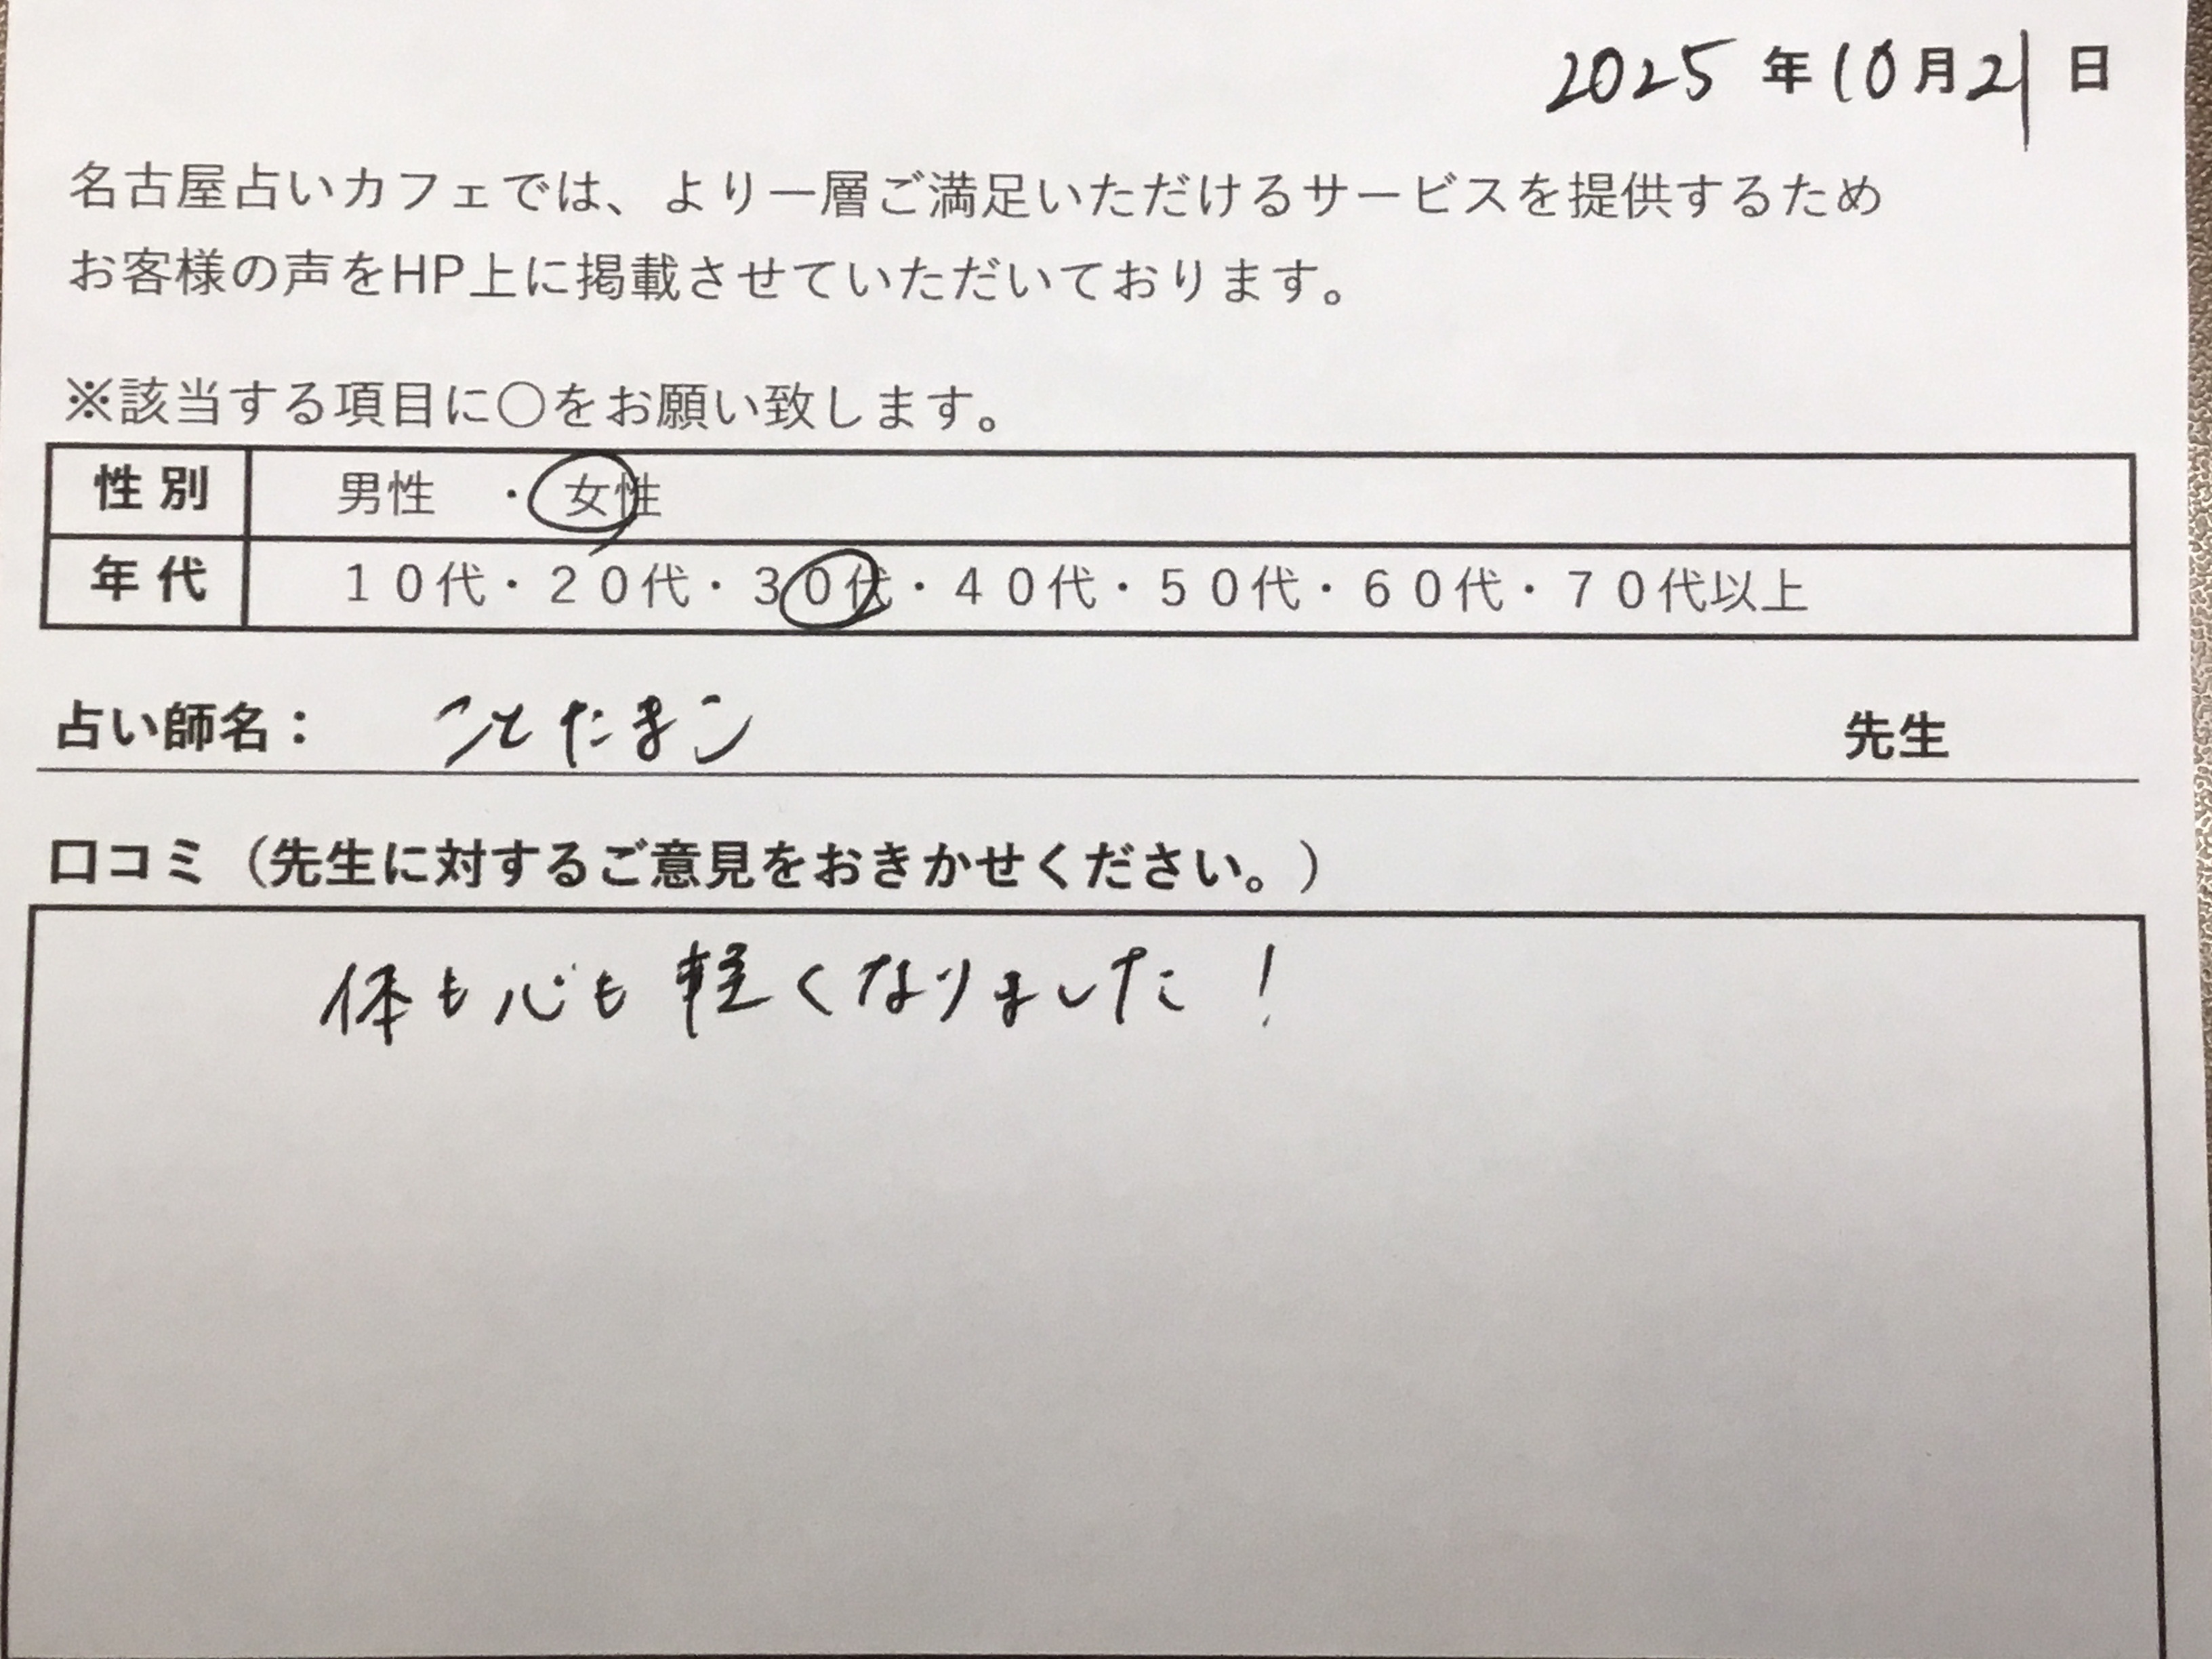 2025年10月21日
名古屋占いカフェでは、より一層ご満足いただけるサービスを提供するため
お客様の声をHP上に掲載させていただいております。
※該当する項目に○をお願い致します。
性別 男性 ・ 女性
年代 １０代・２０代・３０代・４０代・５０代・６０代・７０代以上
占い師名： ことたまこ 先生
口コミ（先生に対するご意見をおきかせください。）
体も心も軽くなりました！